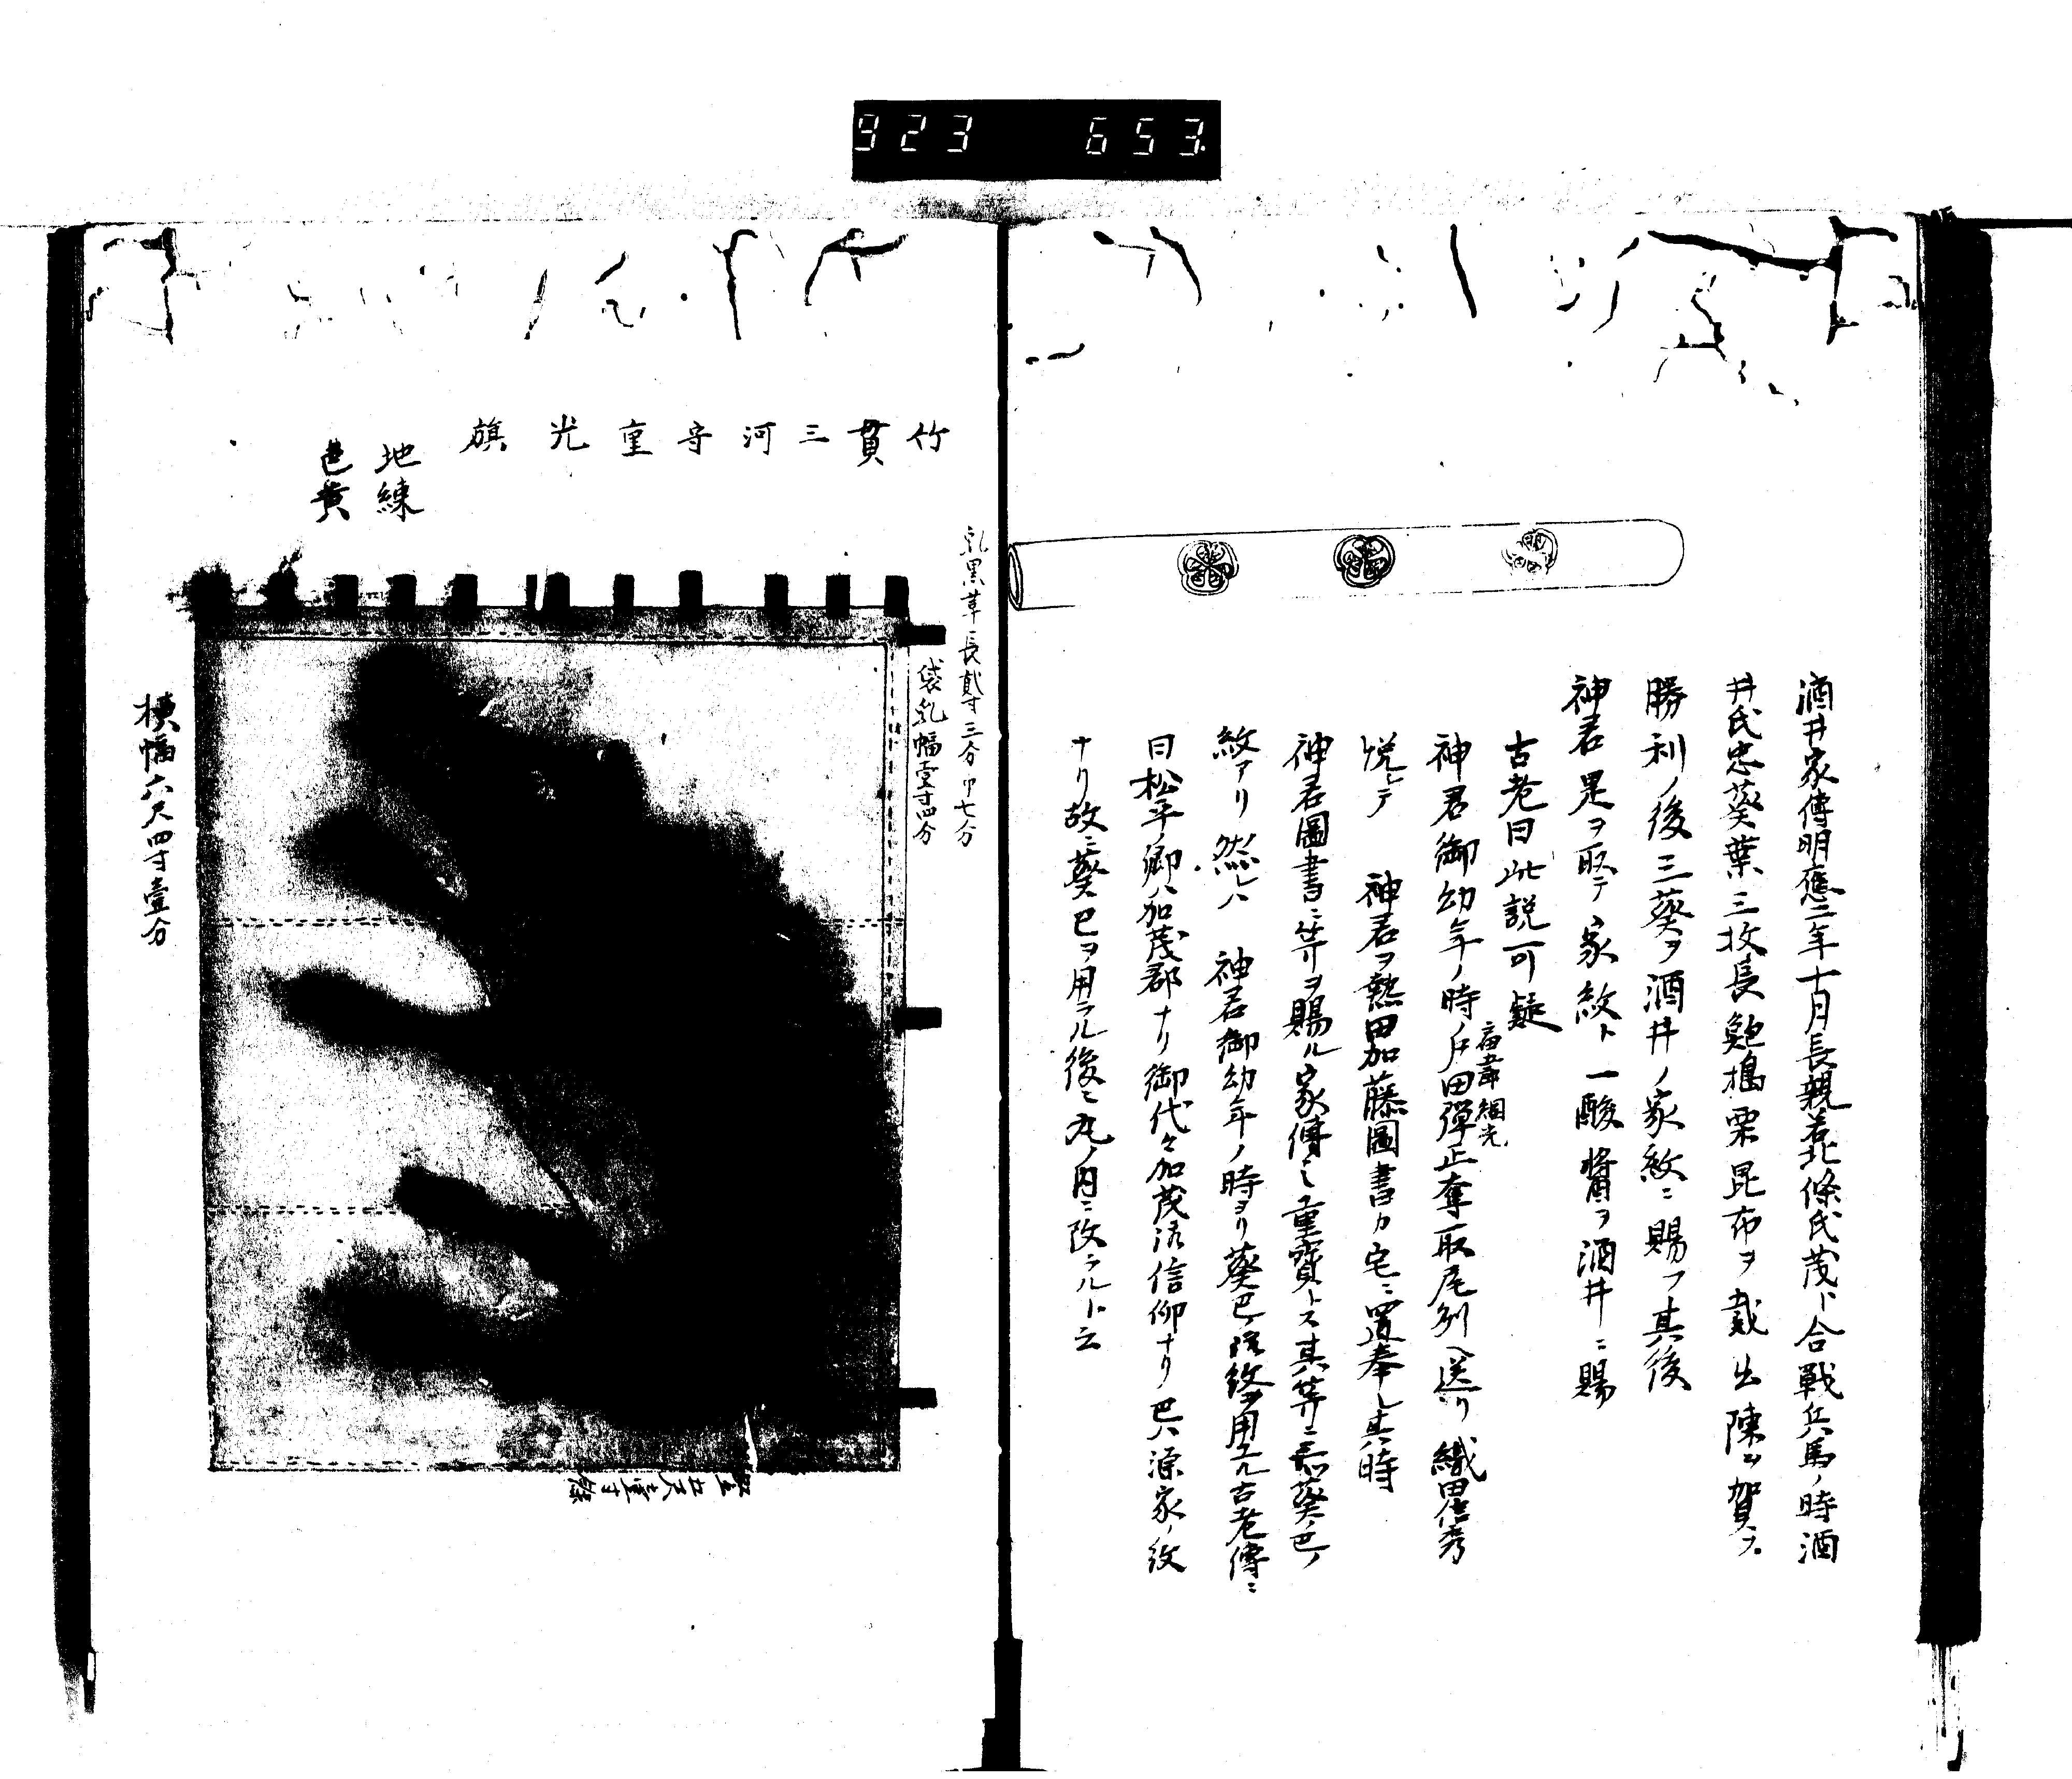 923 653.
酒井家傳明應二年十月長親君北條氏茂ト合戰兵馬ノ時酒
井氏忠葵葉三枚長鮑搗栗昆布ヲ戴出陳ヲ賀ス
勝利ノ後三葵ヲ酒井ノ家紋ニ賜フ其後
神君是ヲ取テ家紋ト一酸醬ヲ酒井ニ賜
古老曰此説可疑
神君御幼年ノ時戸田彈正奪取尾刕ヘ送リ織田信秀
悦テ 神君ヲ熱田加藤圖書カ宅ニ置奉ル其時
神君圖書ニ笄ヲ賜ル家傳之重寳トス其笄ニ葵巴ノ
紋アリ然レハ 神君御幼年ノ時ヨリ葵巴ノ紋ヲ用ユル古老傳ニ
曰松平ノ郷ハ加茂郡ナリ御代々加茂信仰ナリ巴ハ源家ノ紋
ナリ故ニ葵巴ヲ用ラル後ニ丸ノ内ニ改ラルト云
竹貫三河守重光旗
地練
色黄
乳黒革長貳寸三分巾七分
袋乳幅壹寸四分
横幅六尺四寸壹分
竪五尺壹寸餘